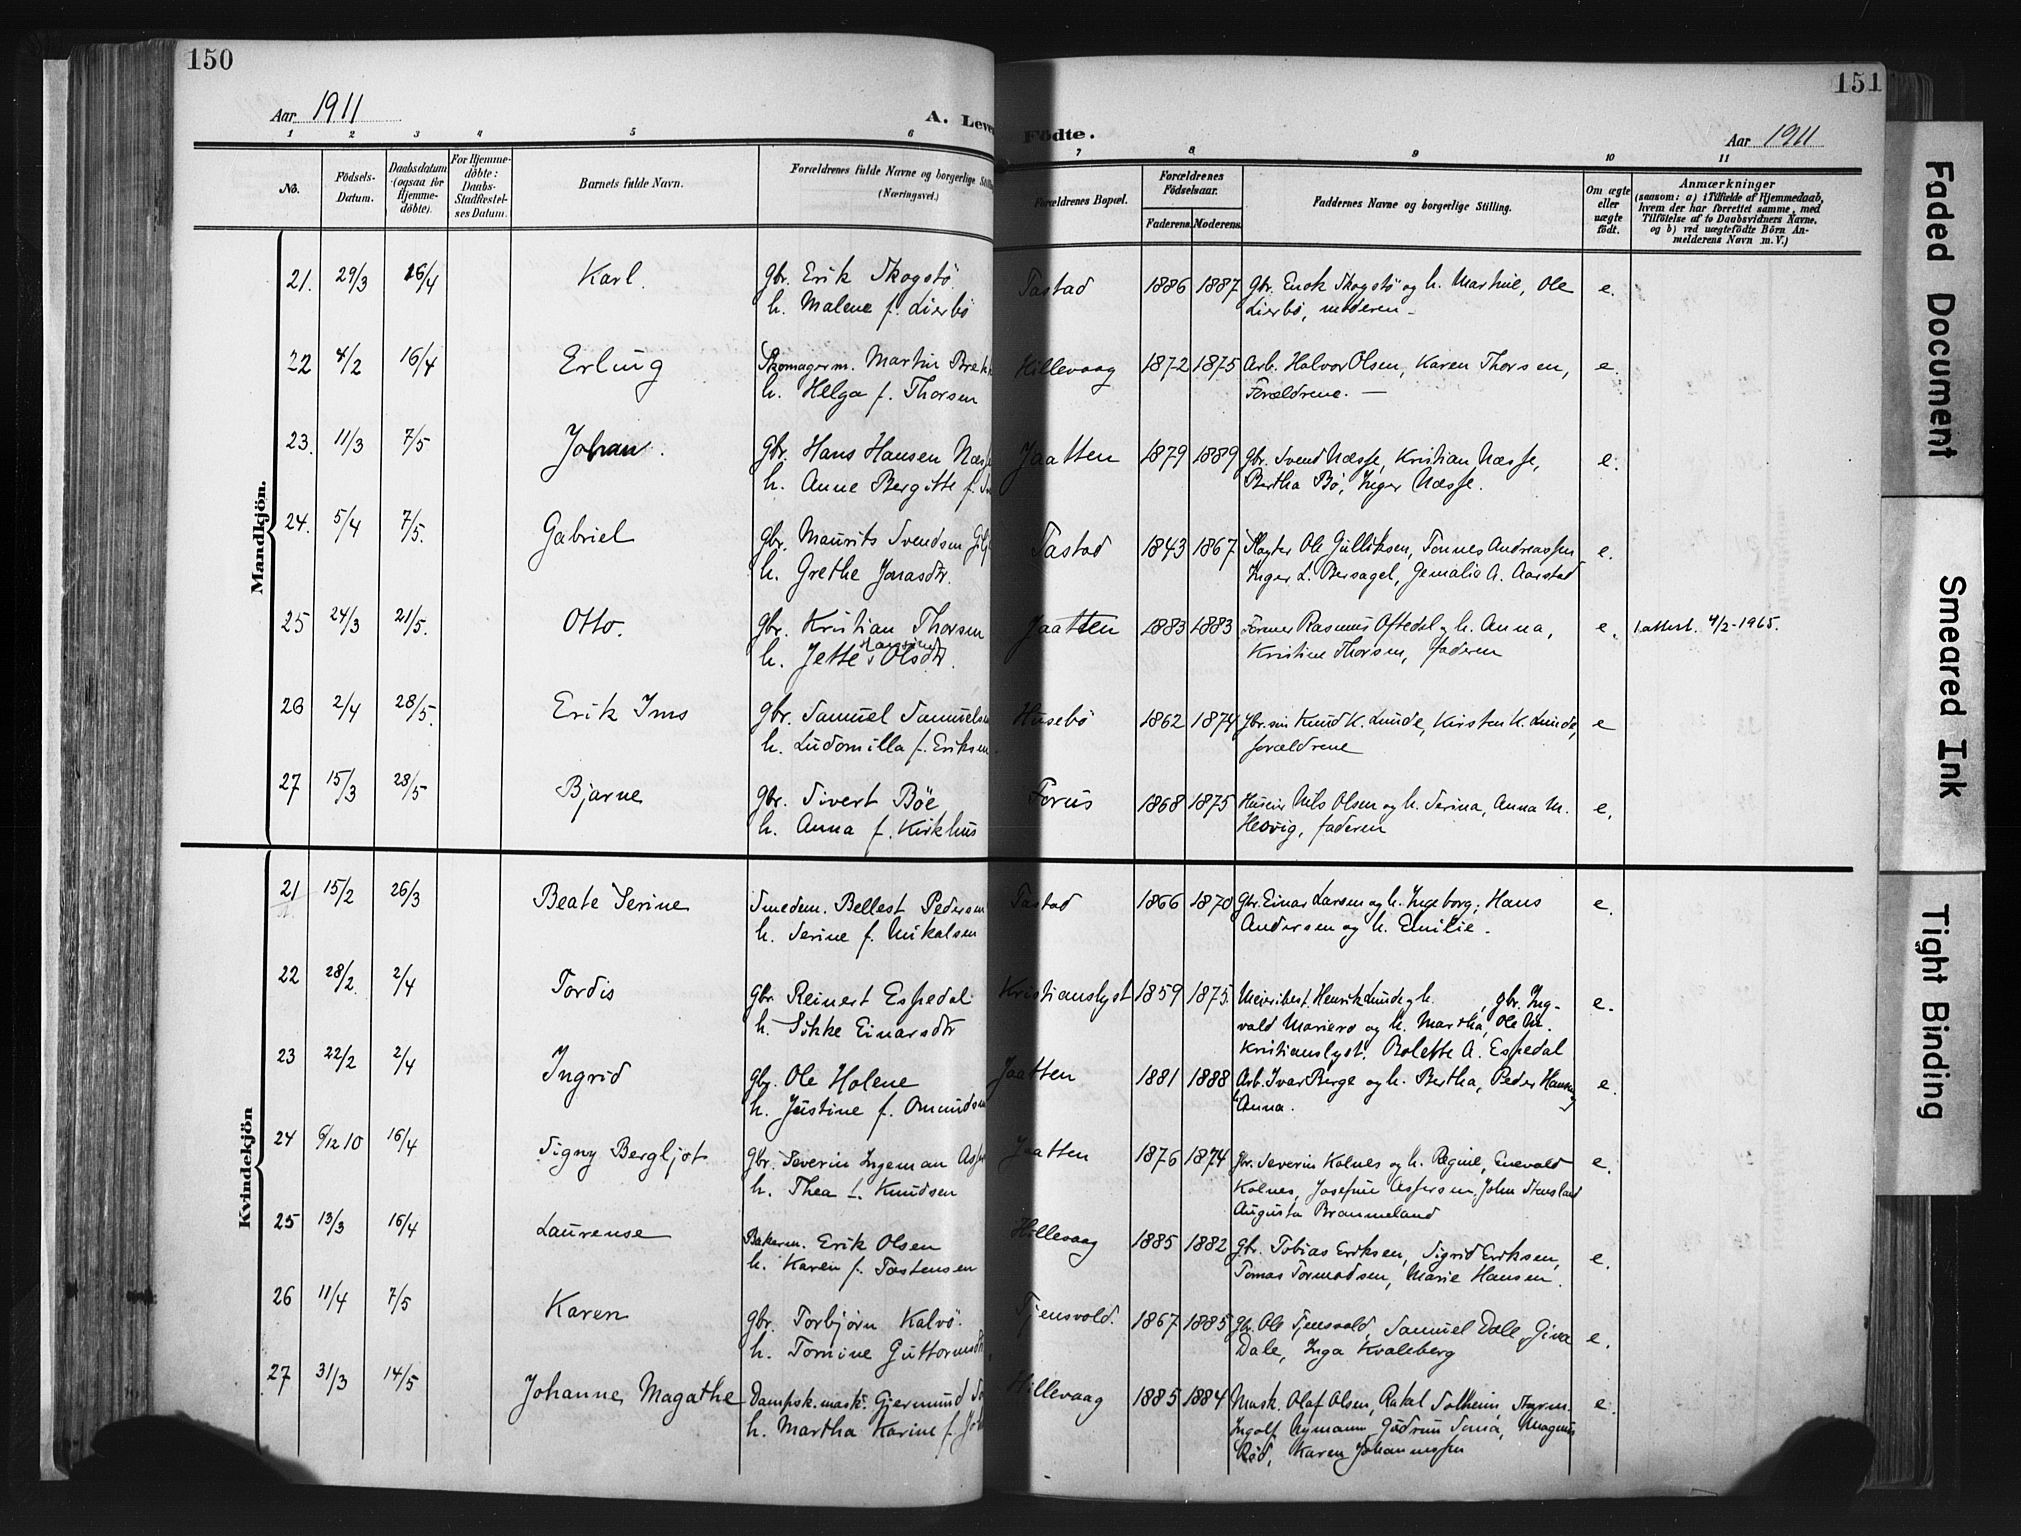 150
Aar 1911
A. Leve
1 2 3 4 5 6
No.
Fødsels-
Datum.
Daabsdatum
(ogsaa for
Hjemme-
døbte).
For Hjemme-
døbte:
Daabs-
Stadfæstel-
ses Datum.
Barnets fulde Navn.
Forældrenes fulde Navne og borgerlige Stilling
(Næringsvei.)
Mandkjön.
21. 29/3 16/4 Karl. gbr. Erik Skogstö
h. Malene f. Lierbö
22 4/2 16/4 Erling Skomagerm. Martin Brekk
h. Helga f. Thorsen
23. 11/3 7/5 Johan. gbr. Hans Hansen Næs
h. Anne Bergitte f.
24. 5/4 7/5. Gabriel gbr. Maurits Svendsen
h. Grethe Jonasdtr.
25 24/3 21/5. Otto. gbr. Kristian Thorsen
h. Jette Olsdtr.
26 2/4 28/5. Erik Ims gbr. Samuel Samuelsen
h. Ludomilla f. Eriksen
27 15/3 28/5 Bjarne gbr. Sivert Böe
h. Anna f. Kirkhus
Kvindekjön
21 15/2 26/3 Beate Serine Smedem. Bellest Pedersen
h. Serine f. Mikalsen
22 28/2. 2/4 Tordis gbr Reinert Espedal
h. Sikke Einarsdtr
23 22/2 2/4 Ingrid gbr. Ole Holene
h. Justine f. Omundsen
24 6/12 10 16/4 Signy Bergljot gbr. Severin Ingeman
h. Thea f. Knudsen
25 13/3 16/4 Laurense Bakerm. Erik Olsen
h. Karen f. Tostensen
26 11/4 7/5 Karen gbr. Torbjörn Kalvö.
h. Tomine Guttormsdtr
27 31/3 14/5 Johanne Magathe Dampsk.mask. Gjermund
h. Martha Karine f.
151
Födte.
Aar 1911
7 8 9 10 11
Forældrenes Bopæl.
Forældrenes
Fødselsaar.
Faderens. Moderens.
Faddernes Navne og borgerlige Stilling.
Om ægte
eller
uægte
født.
Anmærkninger
(saasom: a) i Tilfælde af Hjemmedaab,
hvem der har forrettet samme, med
Tilføtelse af to Daabsvidners Navne,
og b) ved uægtefødte Børn An-
melderens Navn m. V.)
Tastad 1886 1887 gbr. Enok Skogstö og h. Martine, Ole e.
Lierbö, moderen
Hillevaag 1872 1875 Arb. Halvor Olsen, Karen Thorsen, e.
Forældrene. —
Jaatten 1879 1889 gbr. Svend Næsse, Kristian Næsse, e.
Bertha Bö, Inger Næsse.
Tastad 1843 1867 Slagter Ole Gulliksen, Tonnes Andreassen e.
Inger L. Bersagel, Jemalia A. Aarstad
Jaatten 1883 1883 Former Rasmus Oftedal og h. Anna, e. 1.attest. 4/2-1965.
Kristine Thorsen, faderen
Husebö 1862 1874 gbr.sön Knud K. Lunde, Kirsten K. Lunde, e
forældrene
Forus 1868 1875 Nils Olsen og h. Serina, Anna M. e.
Hedvig, faderen
Tastad 1866 1870 gbr. Einar Larsen og h. Ingeborg, Hans e.
Andersen og h. Emilie.
Kristianslyst 1859 1875. Meieribest. Henrik Lunde og h. , gbr. Ing- e.
vald Marierö og h. Martha, Ole M.
Kristianslyst, Bolette A. Espedal
Jaatten 1881 1888 Arb. Ivar Berge og h. Bertha, Peder Hansen og e
h. Anna.
Jaatten 1876 1874 gbr. Severin Kolnes og h. Regine, Enevald e.
Kolnes, Josefine Aspersen, John Stensland
Augusta Brommeland
Hillevaag 1885 1882 gbr. Tobias Eriksen, Sigrid Eriksen, e.
Tomas Tormodsen, Marie Hansen.
Tjensvold. 1867 1885 gbr. Ole Tjensvold, Samuel Dale, Gina e.
Dale, Inga Kvaleberg
Hillevaag 1885 1884 Mask. Olaf Olsen, Rakel Solheim, Styrm. e.
Ingolf Nymann, Gudrun Sömö, Magnus
Röd, Karen Johannessen
Faded Document
Smeared Ink
Tight Binding